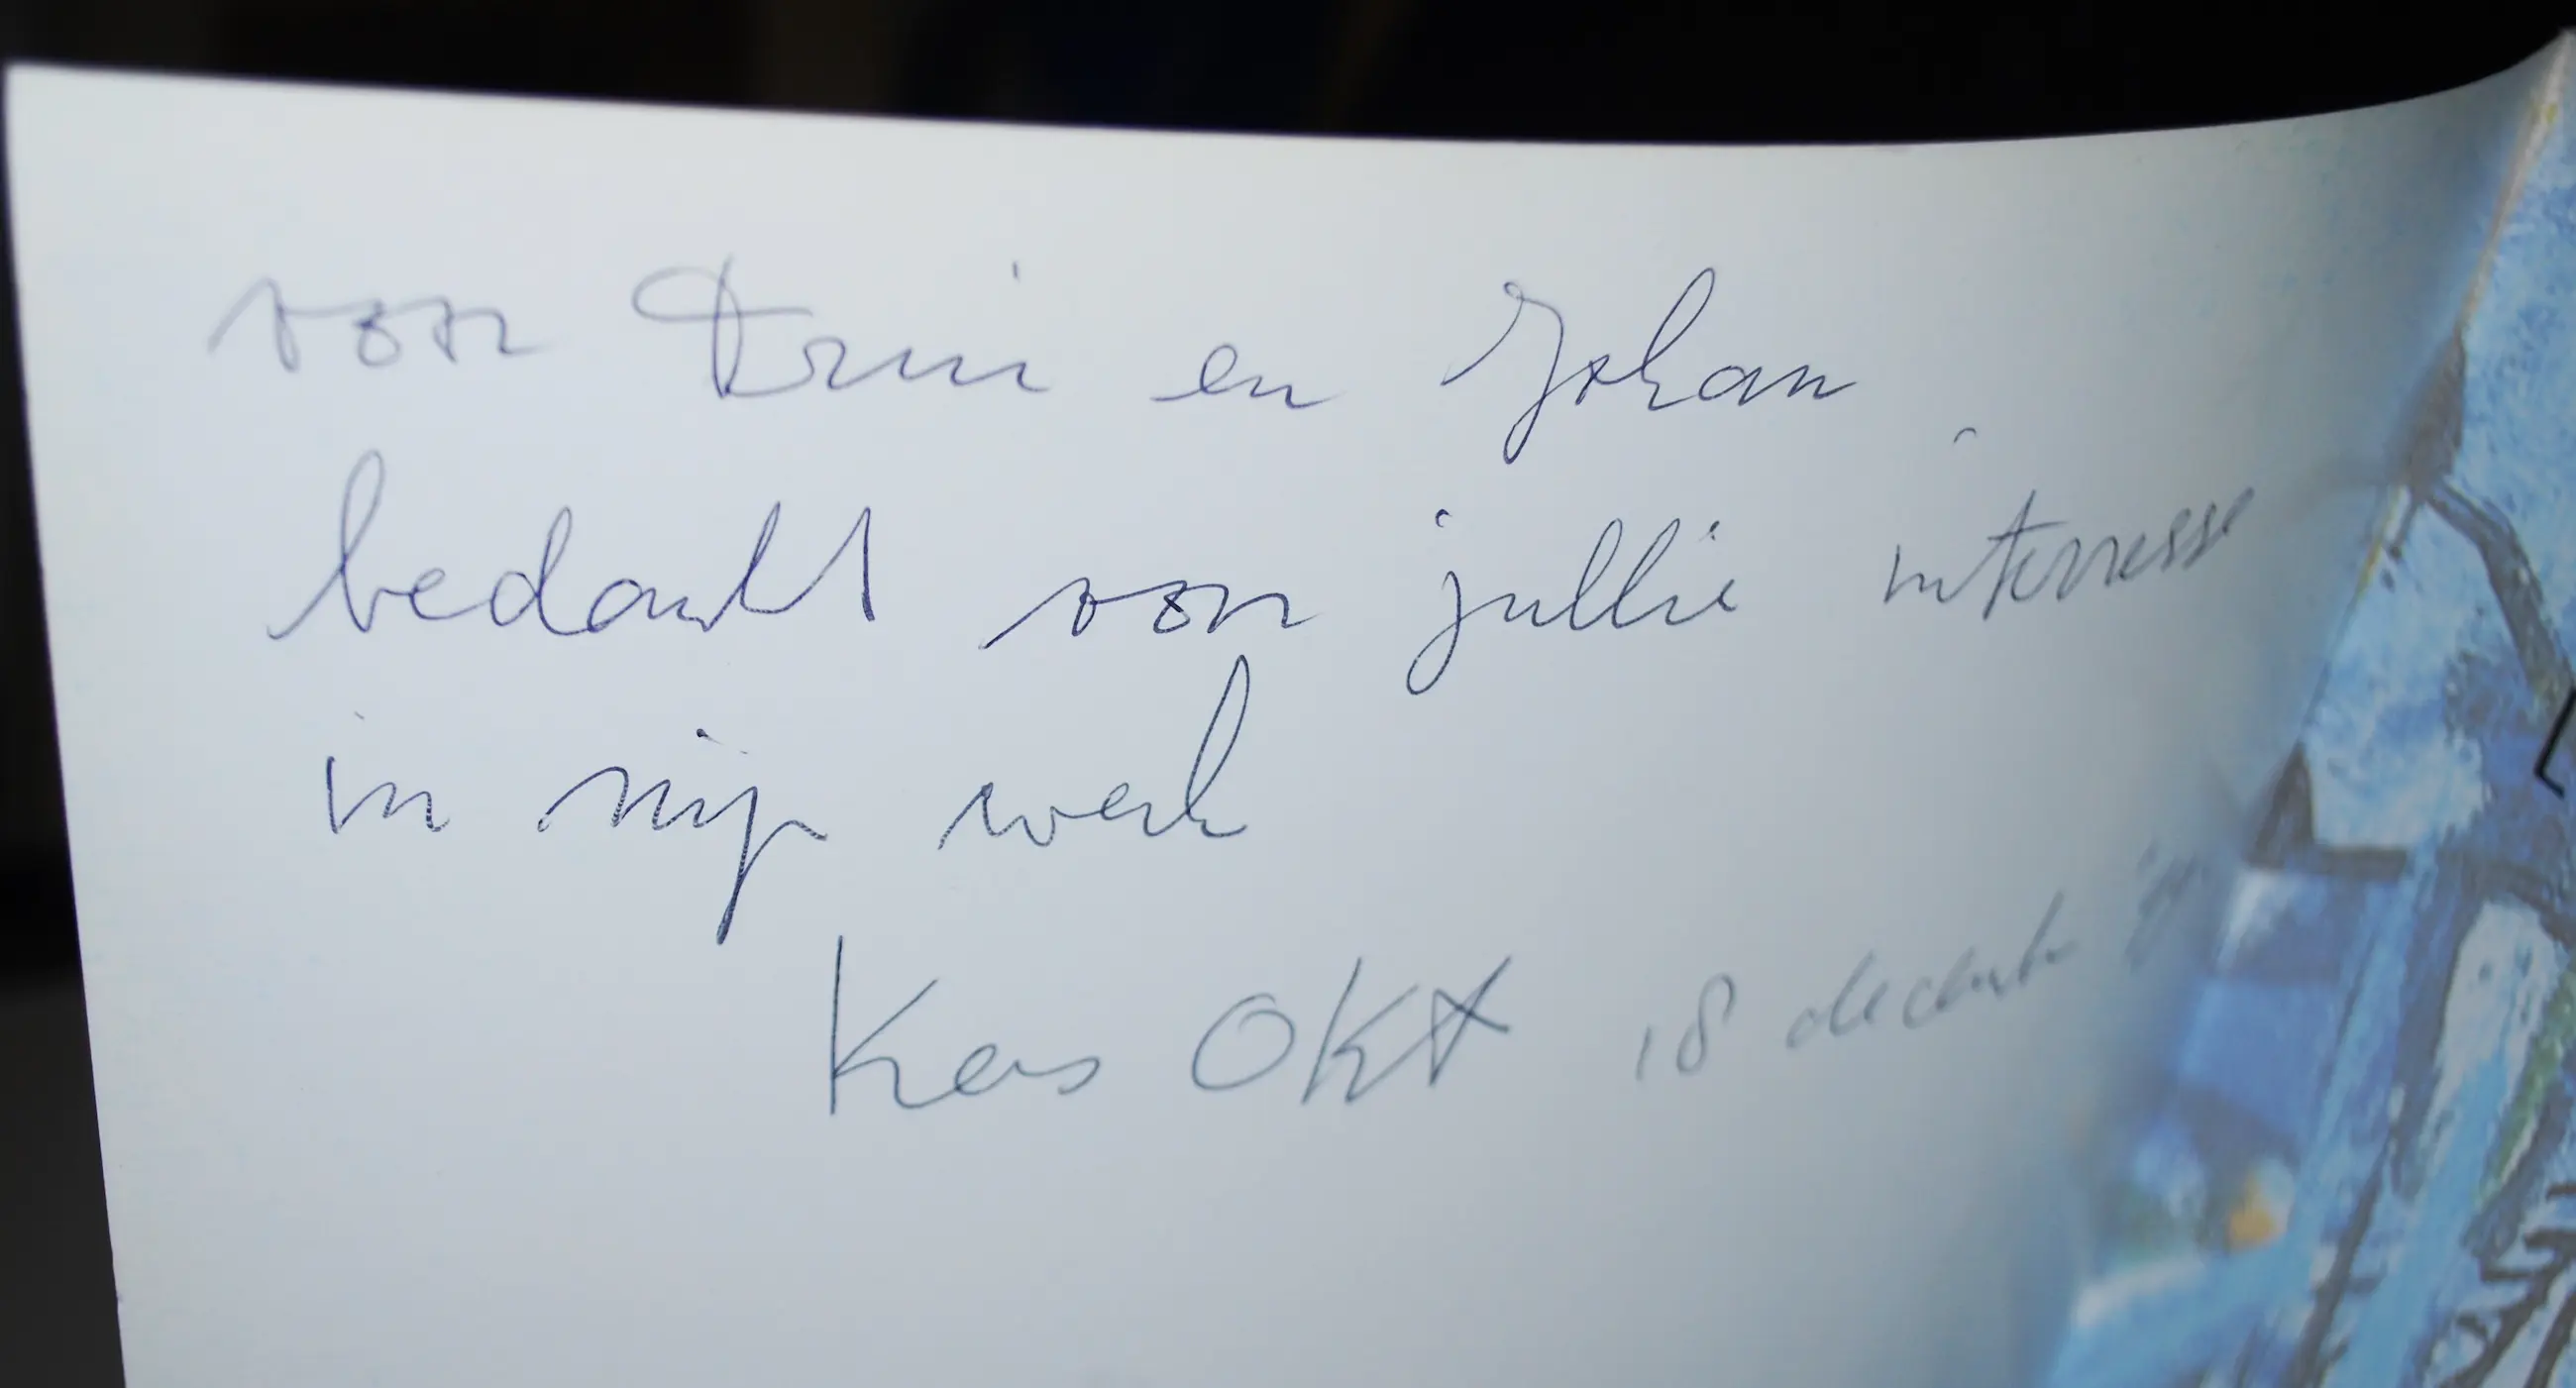 voor Truii en Johan
bedankt voor jullie interresse
in mijn werk
Kees Okx 18 december